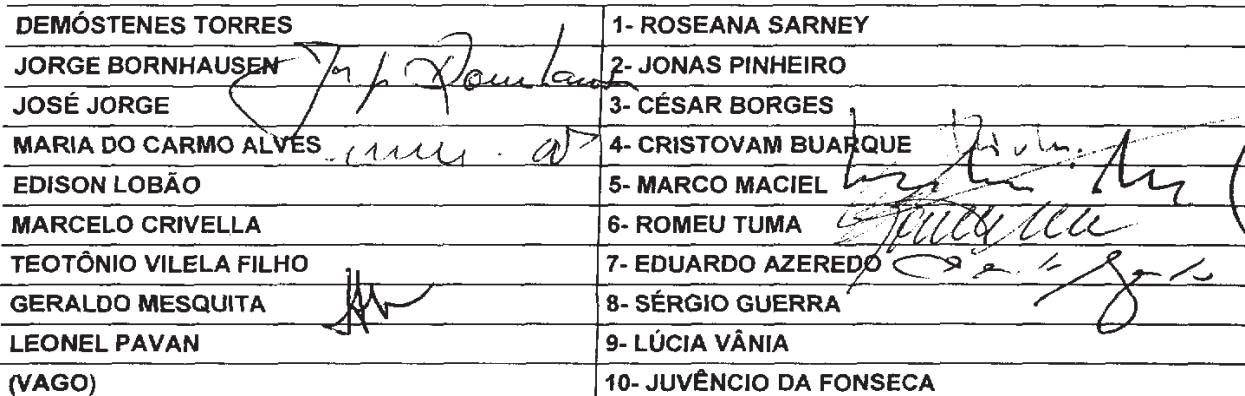 DEMÓSTENES TORRES 1- ROSEANA SARNEY
JORGE BORNHAUSEN 2- JONAS PINHEIRO
JOSÉ JORGE 3- CÉSAR BORGES
MARIA DO CARMO ALVES 4- CRISTOVAM BUARQUE
EDISON LOBÃO 5- MARCO MACIEL
MARCELO CRIVELLA 6- ROMEU TUMA
TEOTÔNIO VILELA FILHO 7- EDUARDO AZEREDO
GERALDO MESQUITA 8- SÉRGIO GUERRA
LEONEL PAVAN 9- LÚCIA VÂNIA
(VAGO) 10- JUVÊNCIO DA FONSECA